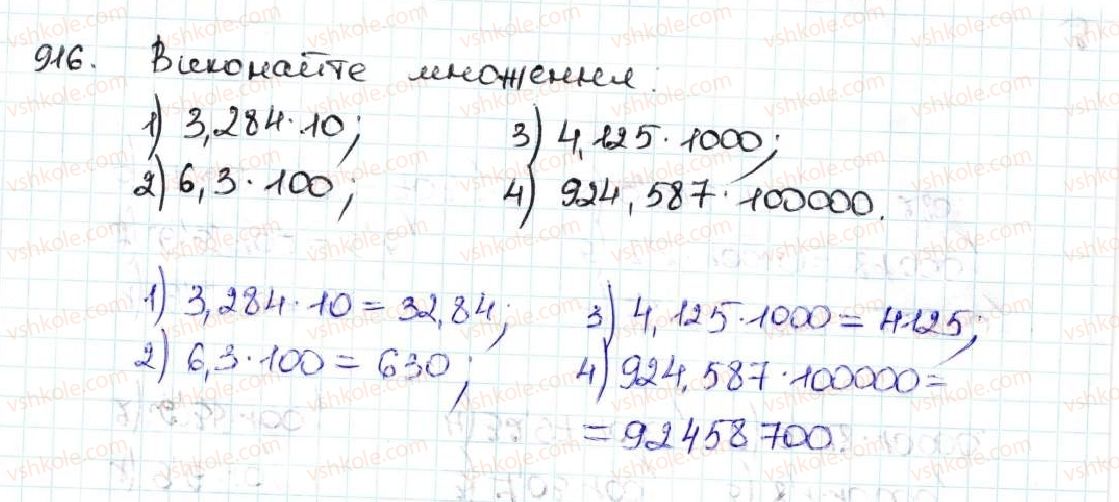 916. Виконайте множення:
1) 3,284·10; 3) 4,125·1000;
2) 6,3·100; 4) 924,587·100000.
1) 3,284·10 = 32,84; 3) 4,125·1000 = 4125;
2) 6,3·100 = 630; 4) 924,587·100000 =
= 92458700.
vshkole.com